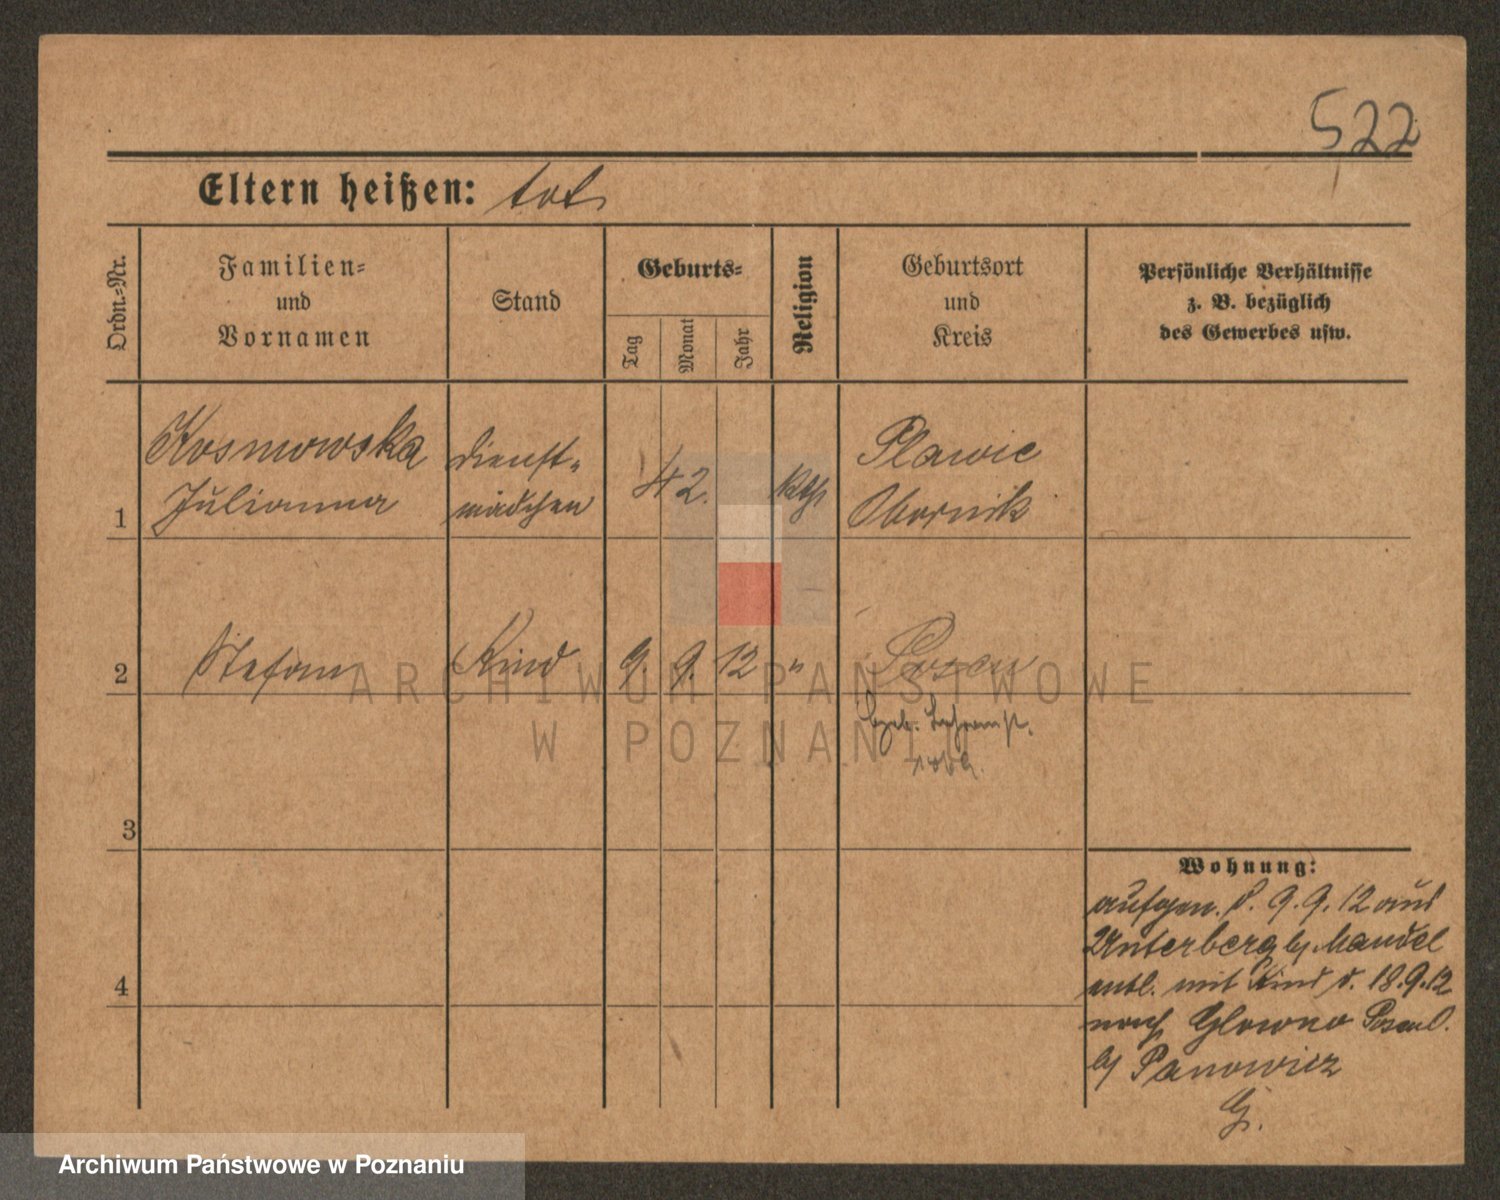 522
Eltern heißen: tot
Ordn.-Nr.
Familien-
und
Vornamen
Stand
Geburts-
Tag
Monat
Jahr
Religion
Geburtsort
und
Kreis
Persönliche Verhältnisse
z. B. bezüglich
des Gewerbes usw.
1
Kosmowska
Julianna
Dienst-
mädchen
42.
kth
Plawie
Obornik
2
Stefan
Kind
9. 9. 12
"
Posen
geb.
3
4
Wohnung:
aufgen. d. 9. 9. 12 aus
Unterberg by Mandel
entl. mit Kind d. 18.9.12
nach Glowno
by Panowicz
ARCHIWUM PAŃSTWOWE
W POZNANIU
Archiwum Państwowe w Poznaniu